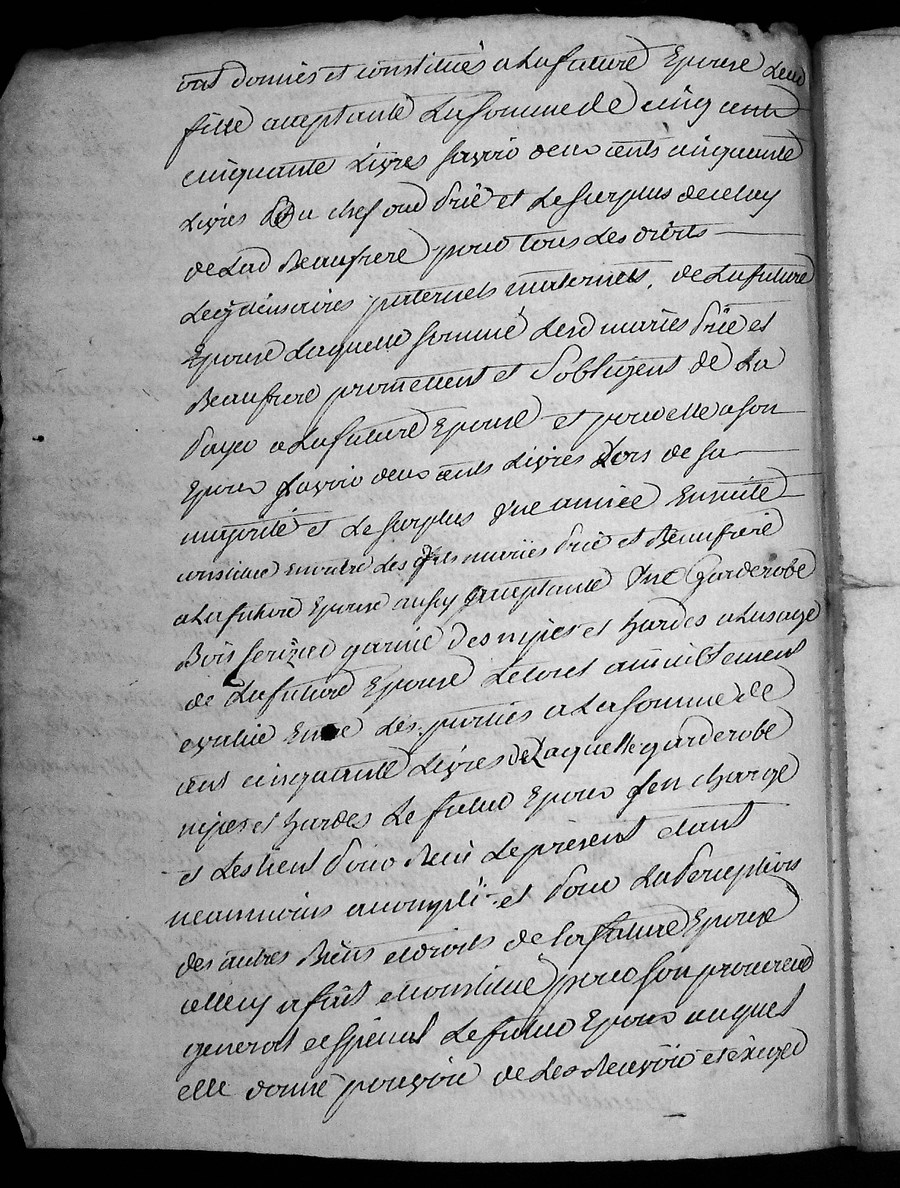 ont donnés et constitués a La future Epouse Leur
fille acceptante La somme de cinq cents
cinquante Livres savoir deux cents cinquante
Livres du chef dud Prié et Le surplus de celuy
de Lad Beaufrere pour tous Les droits
Legitimaires paternels maternels, de La future
Epouse Laquelle somme Lesd mariés Prié et
Beaufrere promettent et s'obligent de La
payer a La future Epouse et pour elle a son
Epoux savoir deux cents Livres Lors de sa
majorité et Le surplus Une année Ensuite
constitue en outre Les dits mariés Prié et Beaufrere
a La future Epouse aussy acceptante Une Garderobe
Bois serizier garnie des nipes et hardes a Lusage
de La future Epouse Le tout amicablement
evalué Entre Les parties a La somme de
cent cinquante Livres de Laquelle garderobe
nipes et hardes Le futur Epoux s'en charge
et Les tient pour Recu Le present etant
neanmoins accompli et pour La Perception
des autres Biens et droits de La future Epouse
celle cy a fait et constitué pour son procureur
general et special Le futur Epoux auquel
elle donne pouvoir de Les Recevoir et exiger